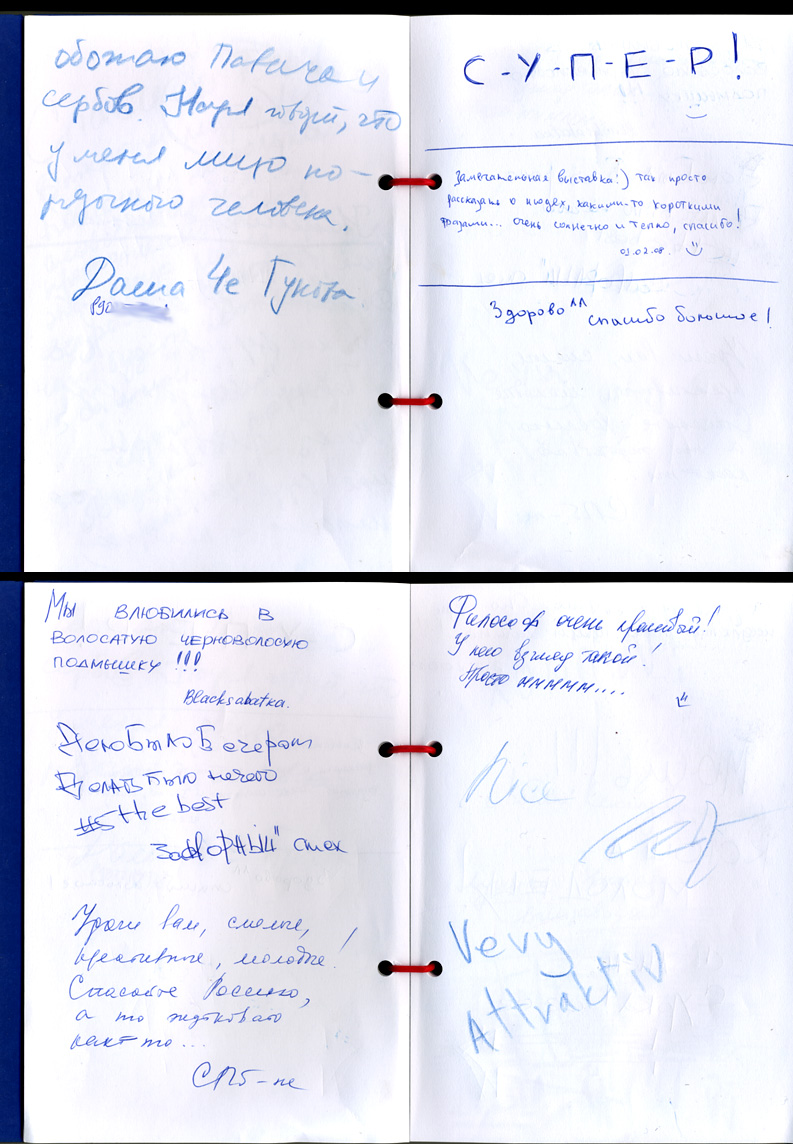 обожаю Павича и
сербов. Надя говорит, что
у меня лицо по-
рядочного человека.
Даша Че Гукова
С-У-П-Е-Р!
Замечательная выставка!) так просто
рассказать о людях, какими-то короткими
фразами... очень солнечно и тепло, спасибо!
02.08.
Здорово^^ спасибо большое!
Мы влюбились в
волосатую черноволосую
подмышку!!!
Blacksabatka.
Дело было вечером
Делать было нечего
the best
Задорный смех
Уроки вам, смелые,
креативные, молодые!
Спасайте Россию,
а то
как то...
СПб-
Философ очень красивый!
У него взгляд такой!
Просто ммммм....
Nice
Very
Attraktiv